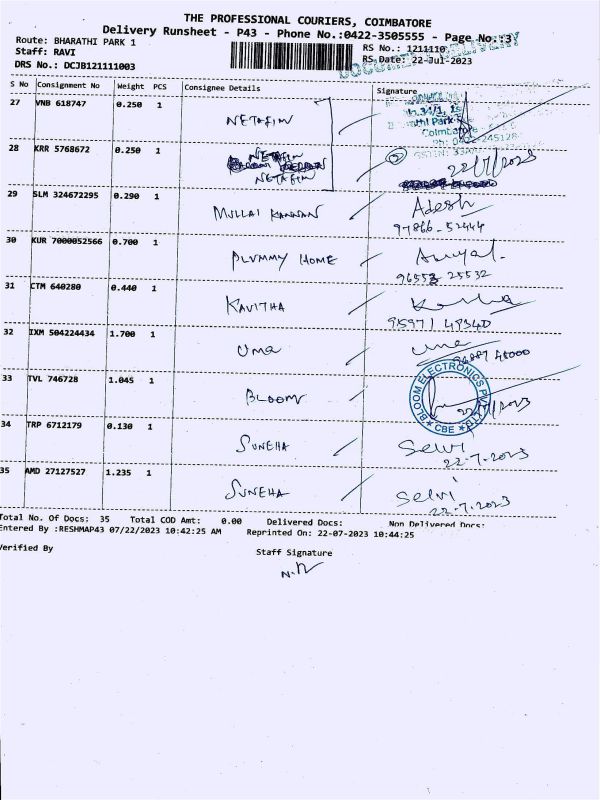 THE PROFESSIONAL COURIERS, COIMBATORE
Delivery Runsheet - P43 - Phone No.:0422-3505555 - Page No.:3
Route: BHARATHI PARK 1
RS No.: 1211110
Staff: RAVI
RS Date: 22-Jul-2023
DRS No.: DCJB121111003
S No Consignment No Weight PCS Consignee Details Signature
27 VNB 618747 0.250 1 NETAFIM
Coimbatore
28 KRR 5768672 0.250 1 NETAFIM
NETAFIM 22/7/2023
29 SLM 324672295 0.290 1 MULLAI KANNAN Adesh
97866-52444
30 KUR 7000052566 0.700 1 PLUMMY HOME
96553 25532
31 CTM 640280 0.440 1 KAVITHA
95971 49340
32 IXM 504224434 1.700 1 Uma Uma
33 TVL 746728 1.045 1 BLOOM
BLOOM ELECTRONICS CBE
34 TRP 6712179 0.130 1 SUNEHA Selvi
22-7-2023
35 AMD 27127527 1.235 1 SUNEHA Selvi
22-7-2023
Total No. Of Docs: 35 Total COD Amt: 0.00 Delivered Docs: Non Delivered Docs:
Entered By :RESHMAP43 07/22/2023 10:42:25 AM Reprinted On: 22-07-2023 10:44:25
Verified By Staff Signature